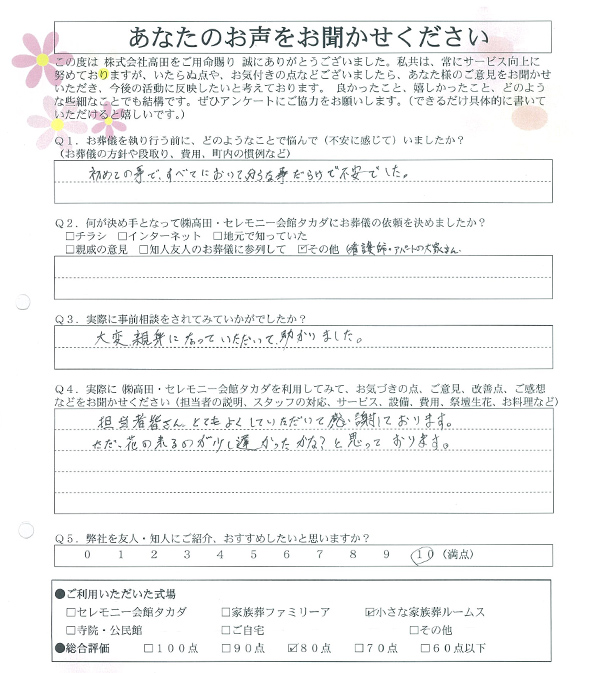 あなたのお声をお聞かせください
この度は 株式会社高田をご用命賜り 誠にありがとうございました。私共は、常にサービス向上に
努めておりますが、いたらぬ点や、お気付きの点などございましたら、あなた様のご意見をお聞かせ
いただき、今後の活動に反映したいと考えております。 良かったこと、嬉しかったこと、どのよう
な些細なことでも結構です。ぜひアンケートにご協力をお願いします。（できるだけ具体的に書いて
いただけると嬉しいです。）
Q１．お葬儀を執り行う前に、どのようなことで悩んで（不安に感じて）いましたか？
（お葬儀の方針や段取り、費用、町内の慣例など）
初めての事で、すべてにおいて分らな事だらけで不安でした。
Q２．何が決め手となって㈱高田・セレモニー会館タカダにお葬儀の依頼を決めましたか？
□チラシ □インターネット □地元で知っていた
□親戚の意見 □知人友人のお葬儀に参列して ☑その他（看護師・アパートの大家さん
Q３．実際に事前相談をされてみていかがでしたか？
大変親身になっていただいて、助かりました。
Q４．実際に ㈱高田・セレモニー会館タカダを利用してみて、お気づきの点、ご意見、改善点、ご感想
などをお聞かせください（担当者の説明、スタッフの対応、サービス、設備、費用、祭壇生花、お料理など）
担当者皆さんとてもよくしていただいて感謝しております。
ただ、花の来るのが少し遅かったかな？と思っております。
Q５．弊社を友人・知人にご紹介、おすすめしたいと思いますか？
0 1 2 3 4 5 6 7 8 9 10（満点）
●ご利用いただいた式場
□セレモニー会館タカダ □家族葬ファミリーア ☑小さな家族葬ルームス
□寺院・公民館 □ご自宅 □その他
●総合評価 □１００点 □９０点 ☑８０点 □７０点 □６０点以下